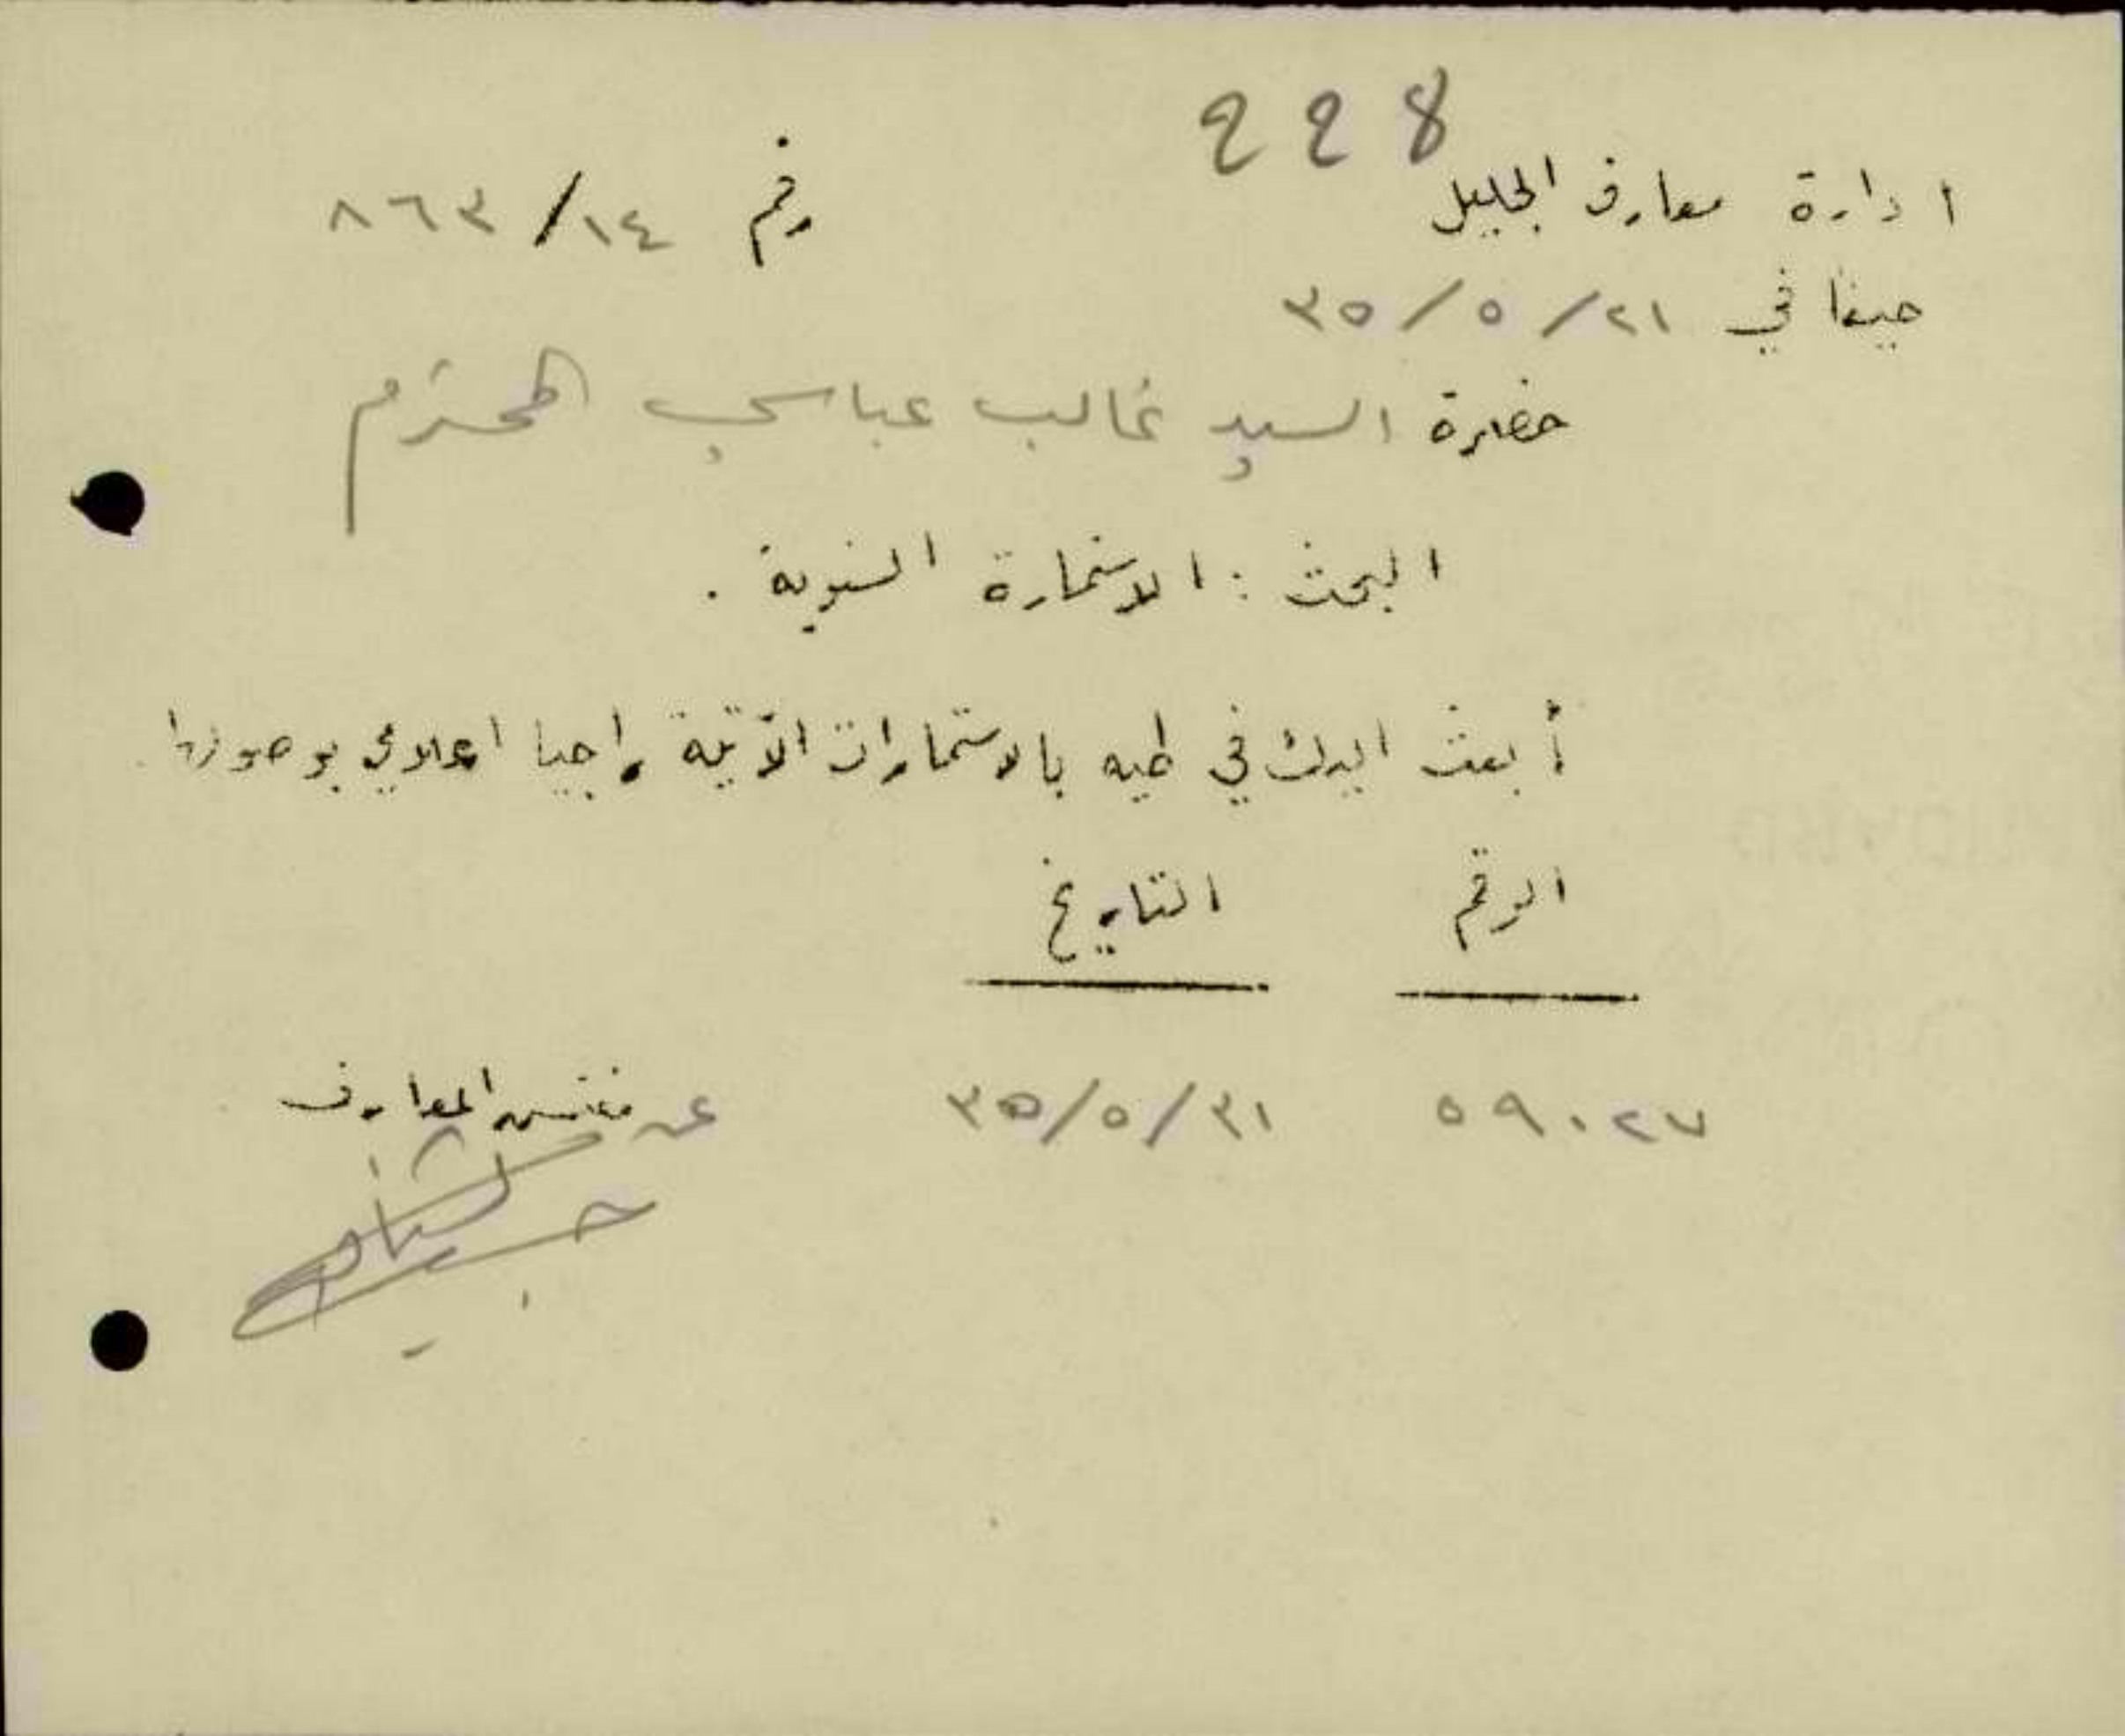 228
ادارة معارف الجليل
رقم ١٤/ ٨٦٣
حيفا في ٢١/ ٥/ ٣٥
حضرة السيد غالب عباسي المحترم
البحث : الاستمارة السنوية .
أبعث اليك في طيه بالاستمارات الآتية راجيا اعلامي بوصولها .
الرقم التاريخ
٥٩٠٢٧ ٣١/ ٥/ ٣٥
عن مفتش المعارف